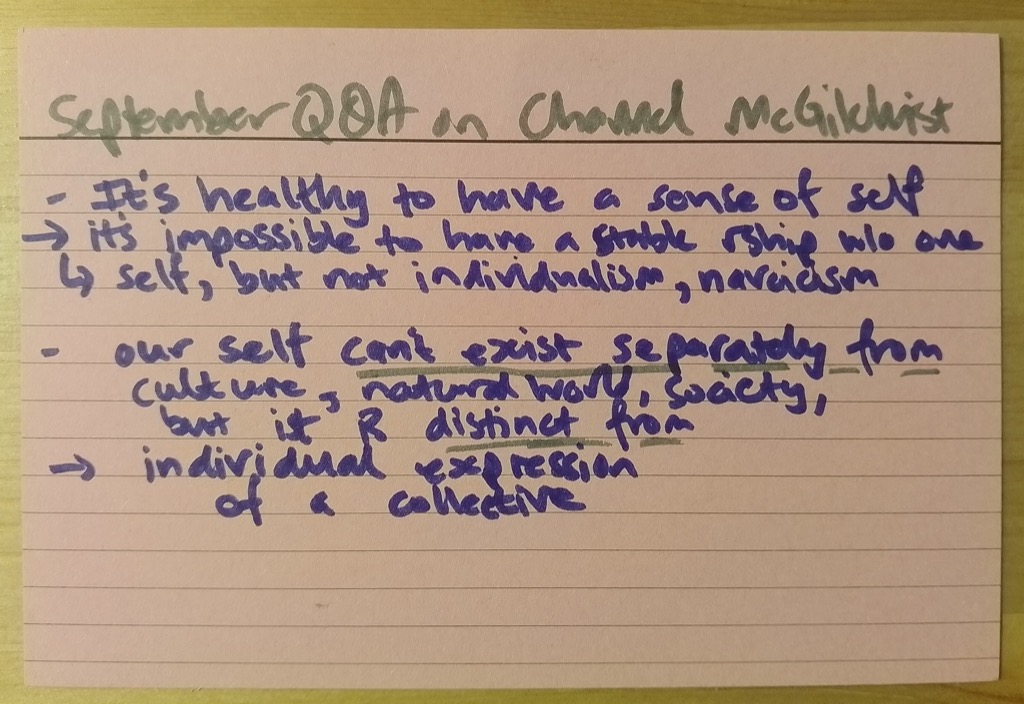 September Q&A on Channel McGilchrist
- It's healthy to have a sense of self
→ it's impossible to have a stable rship w/o one
↳ self, but not individualism, narcicism
- our self can't exist separately from
culture, natural world, society,
but it is distinct from
→ individual expression
of a collective